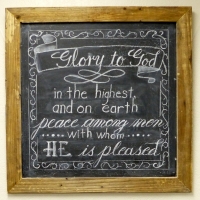 Glory to God
in the highest,
and on earth
peace among men
with whom
HE is pleased